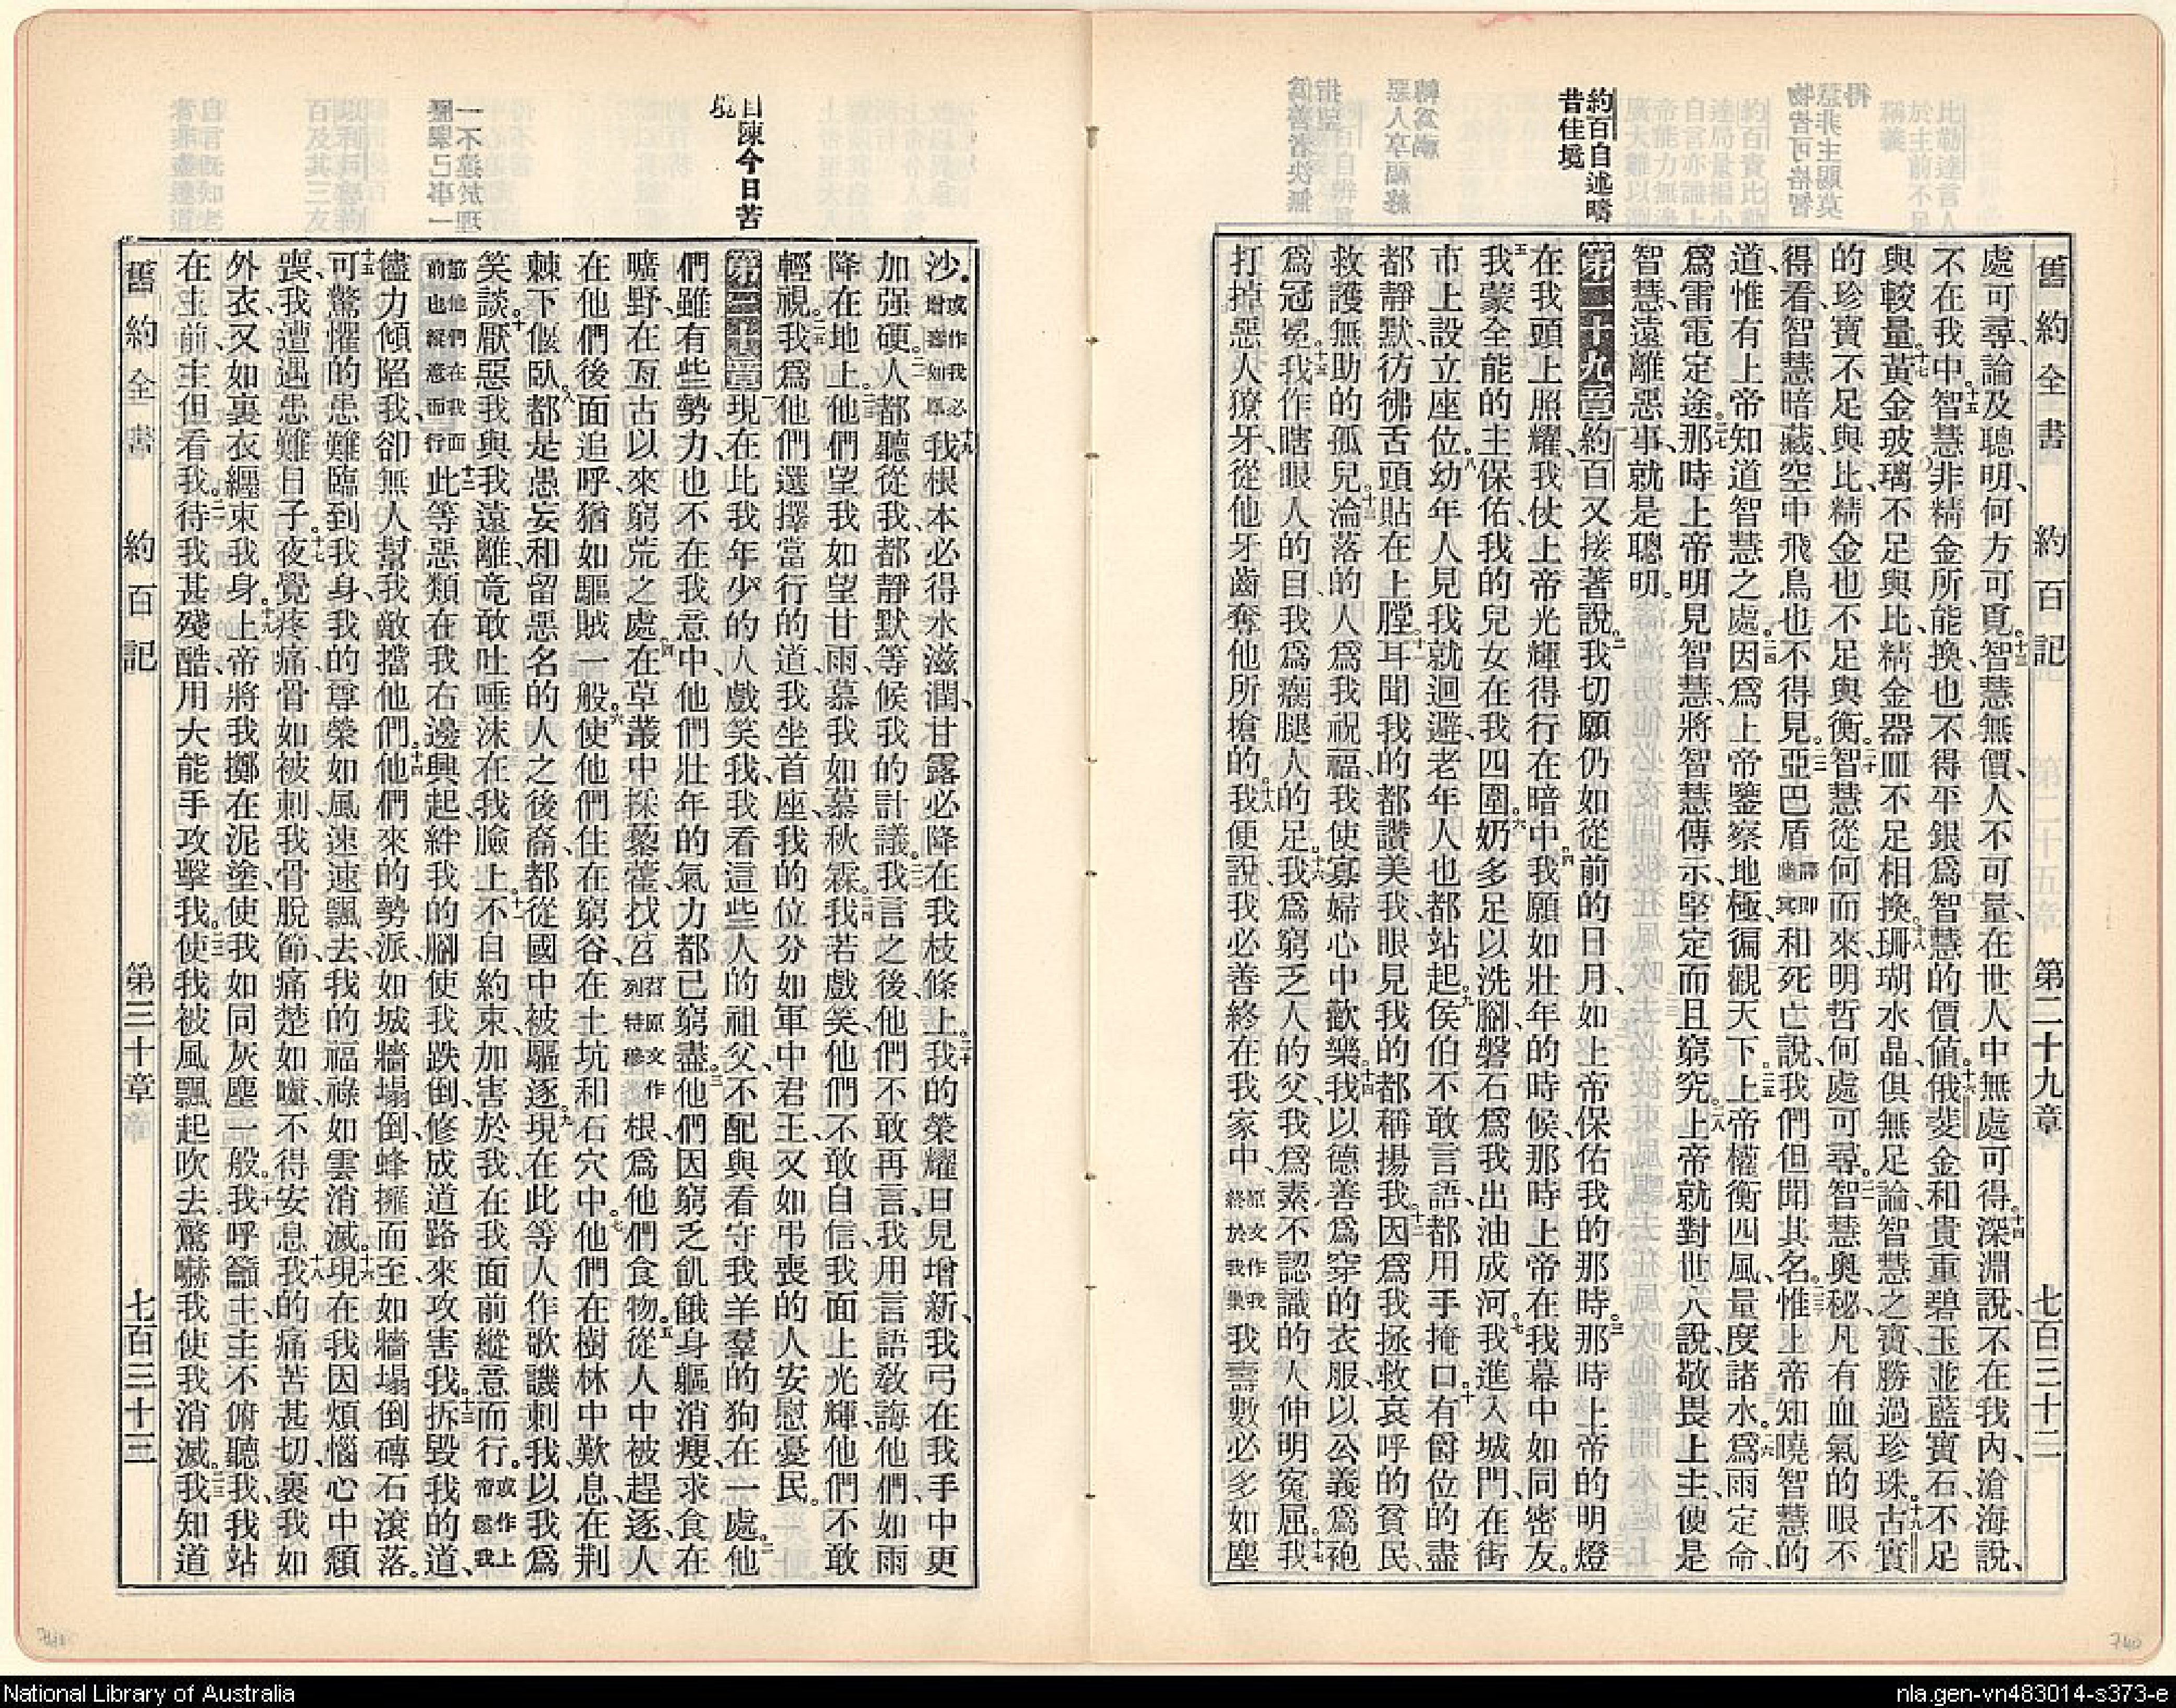 舊約全書　約百記　第二十九章　七百三十二
約百自述疇
昔佳境
處可尋、論及聰明、何方可覓。十三智慧無價、人不可量、在世人中無處可得。十四深淵說、不在我內、滄海說、
不在我中。十五智慧非精金所能換、也不得平銀爲智慧的價値。十六俄斐金和貴重碧玉並藍寶石不足
與較量。十七黃金玻璃不足與比、精金器皿不足相換。十八珊瑚水晶、俱無足論、智慧之寶、勝過珍珠。十九古實
的珍寶不足與比、精金也不足與衡。二十智慧從何而來、明哲何處可尋。二一智慧奧秘、凡有血氣的眼不
得看、智慧暗藏、空中飛鳥也不得見。二二亞巴盾譯卽幽冥和死亡說、我們但聞其名。二三惟上帝知曉智慧的
道、惟有上帝知道智慧之處。二四因爲上帝鑒察地極、徧觀天下。二五上帝權衡四風、量度諸水。二六爲雨定命、
爲雷電定途。二七那時上帝明見智慧、將智慧傳示、堅定而且窮究。二八上帝就對世人說、敬畏上主、便是
智慧、遠離惡事、就是聰明。
第二十九章一約百又接著說。二我切願仍如從前的日月、如上帝保佑我的那時。三那時上帝的明燈
在我頭上照耀、我仗上帝光輝得行在暗中。四我願如壯年的時候、那時上帝在我幕中如同密友。
五我蒙全能的主保佑、我的兒女在我四圍。六奶多足以洗腳、磐石爲我出油成河。七我進入城門、在街
市上設立座位。八幼年人見我就迴避、老年人也都站起。九侯伯不敢言語、都用手掩口。十有爵位的盡
都靜默、彷彿舌頭貼在上膛。十一耳聞我的都讚美我、眼見我的都稱揚我。十二因爲我拯救哀呼的貧民、
救護無助的孤兒。十三淪落的人爲我祝福、我使寡婦心中歡樂。十四我以德善爲穿的衣服、以公義爲袍
爲冠冕。十五我作瞎眼人的目、我爲瘸腿人的足。十六我爲窮乏人的父、我爲素不認識的人伸明寃屈。十七我
打掉惡人獠牙、從他牙齒奪他所搶的。十八我便說、我必善終在我家中、原文作我終於我巢我壽數必多如塵
沙。或作我必增壽如鳳十九我根本必得水滋潤、甘露必降在我枝條上。二十我的榮耀日見增新、我弓在我手中更
加强硬。二一人都聽從我、都靜默等候我的計議。二二我言之後、他們不敢再言、我用言語敎誨他們、如雨
降在地上。二三他們望我如望甘雨、慕我如慕秋霖。二四我若戲笑、他們不敢自信、我面上光輝、他們不敢
輕視。二五我爲他們選擇當行的道、我坐首座、我的位分如軍中君王、又如弔喪的人安慰憂民。
自陳今日苦
境
第三十章一現在比我年少的人戲笑我、我看這些人的祖父、不配與看守我羊羣的狗在一處。二他
們雖有些勢力、也不在我意中、他們壯年的氣力都已窮盡。三他們因窮乏飢餓身軀消瘦、求食在
曠野、在亙古以來窮荒之處。四在草叢中採藜藿、找苕苕原文作列特穆根、爲他們食物。五從人中被趕逐、人
在他們後面追呼、猶如驅賊一般。六使他們住在窮谷、在土坑和石穴中。七他們在樹林中歎息、在荆
棘下偃臥。八都是愚妄和留惡名的人之後裔、都從國中被驅逐。九現在此等人作歌譏刺我、以我爲
笑談。十厭惡我、與我遠離、竟敢吐唾沫在我臉上。十一不自約束、加害於我、在我面前縱意而行。或作上帝鬆我
筋他們在我面前也縱意而行十二此等惡類在我右邊興起、絆我的腳、使我跌倒、修成道路來攻害我。十三拆毀我的道、
儘力傾陷我、卻無人幫我敵擋他們。十四他們來的勢派、如城牆塌倒、蜂擁而至、如牆塌倒磚石滾落。
十五可驚懼的患難臨到我身、我的尊榮如風速速飄去、我的福祿如雲消滅。十六現在我因煩惱心中頹
喪、我遭遇患難日子。十七夜覺疼痛骨如被刺、我骨脫節、痛楚如囓、不得安息。十八我的痛苦甚切、裏我如
外衣、又如裏衣纏束我身。十九上帝將我擲在泥塗、使我如同灰塵一般。二十我呼籲主、主不俯聽我、我站
在主前、主但看我。二一待我甚殘酷、用大能手攻擊我。二二使我被風飄起吹去、驚嚇我使我消滅。二三我知道
舊約全書　約百記　第三十章　七百三十三
740
National Library of Australia
nla.gen-vn483014-s373-e